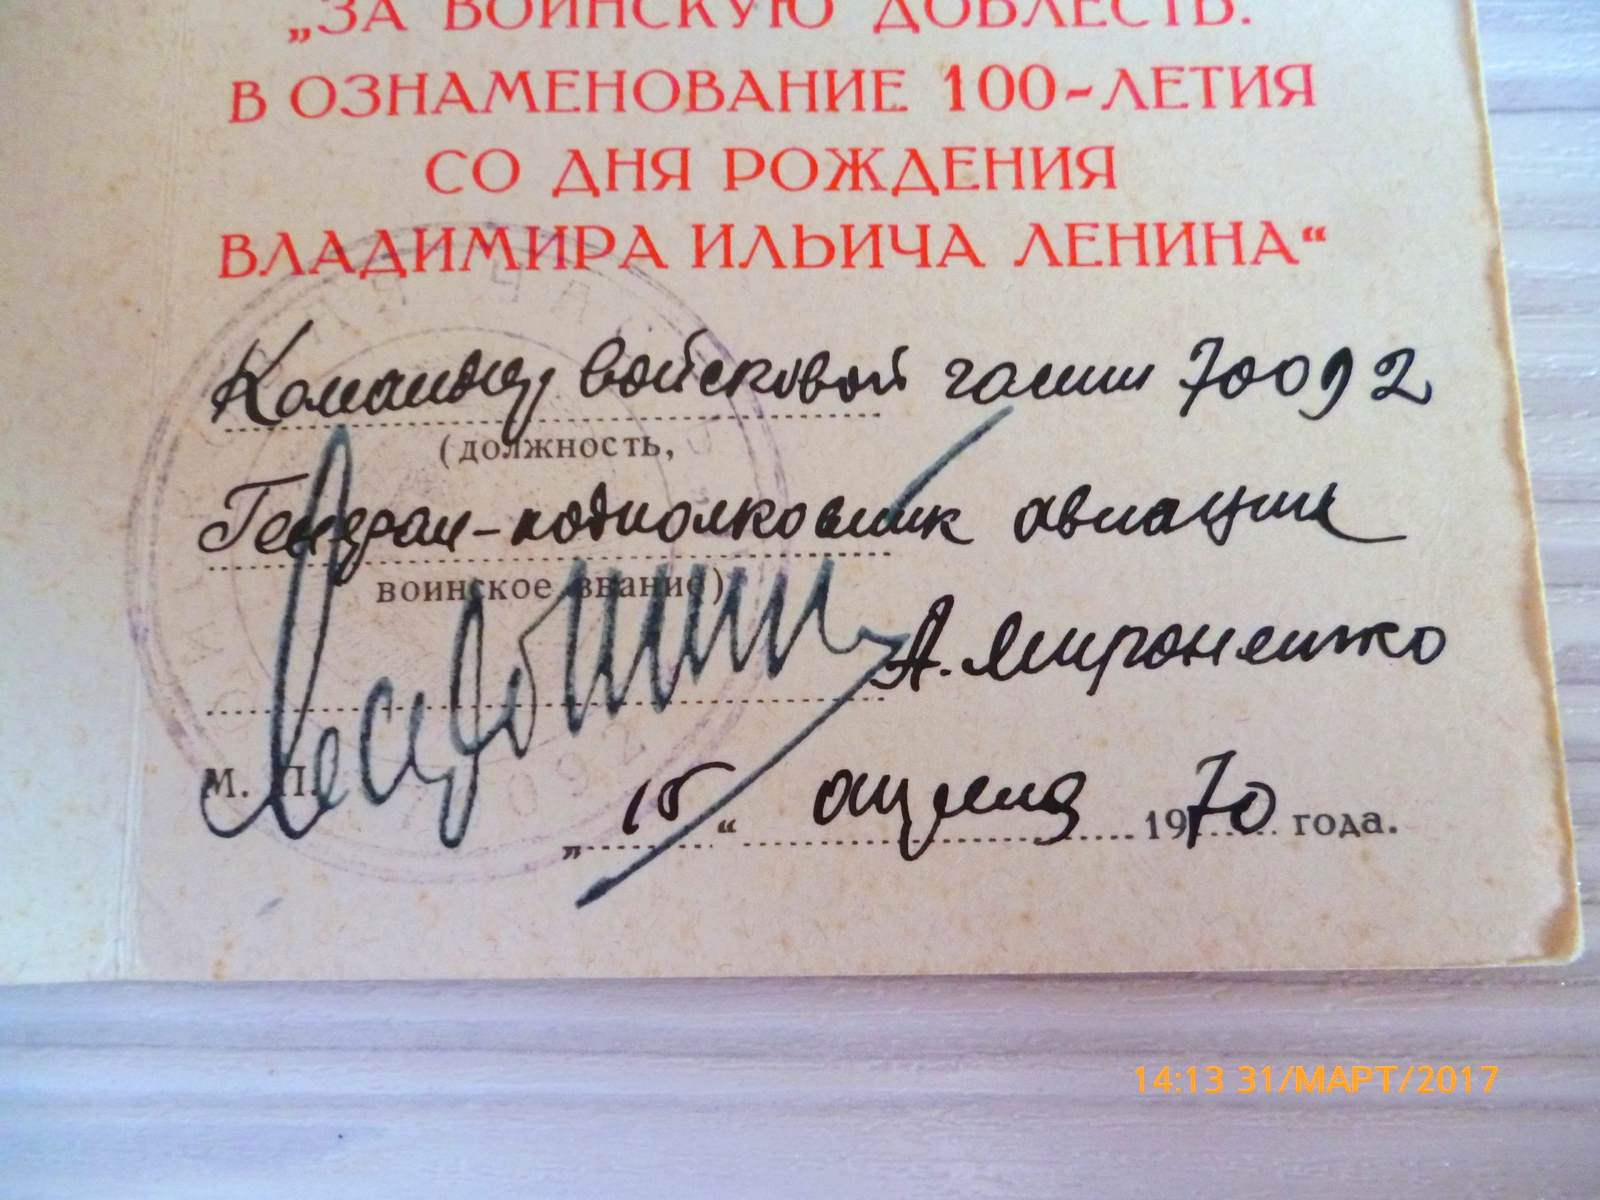 „ЗА ВОИНСКУЮ ДОБЛЕСТЬ.
В ОЗНАМЕНОВАНИЕ 100-ЛЕТИЯ
СО ДНЯ РОЖДЕНИЯ
ВЛАДИМИРА ИЛЬИЧА ЛЕНИНА“
Командир войсковой части 70092
(должность,
Генерал-подполковник авиации
воинское звание)
А. Мироненко
М. П.
„15“ апреля 1970 года.
14:13 31/МАРТ/2017